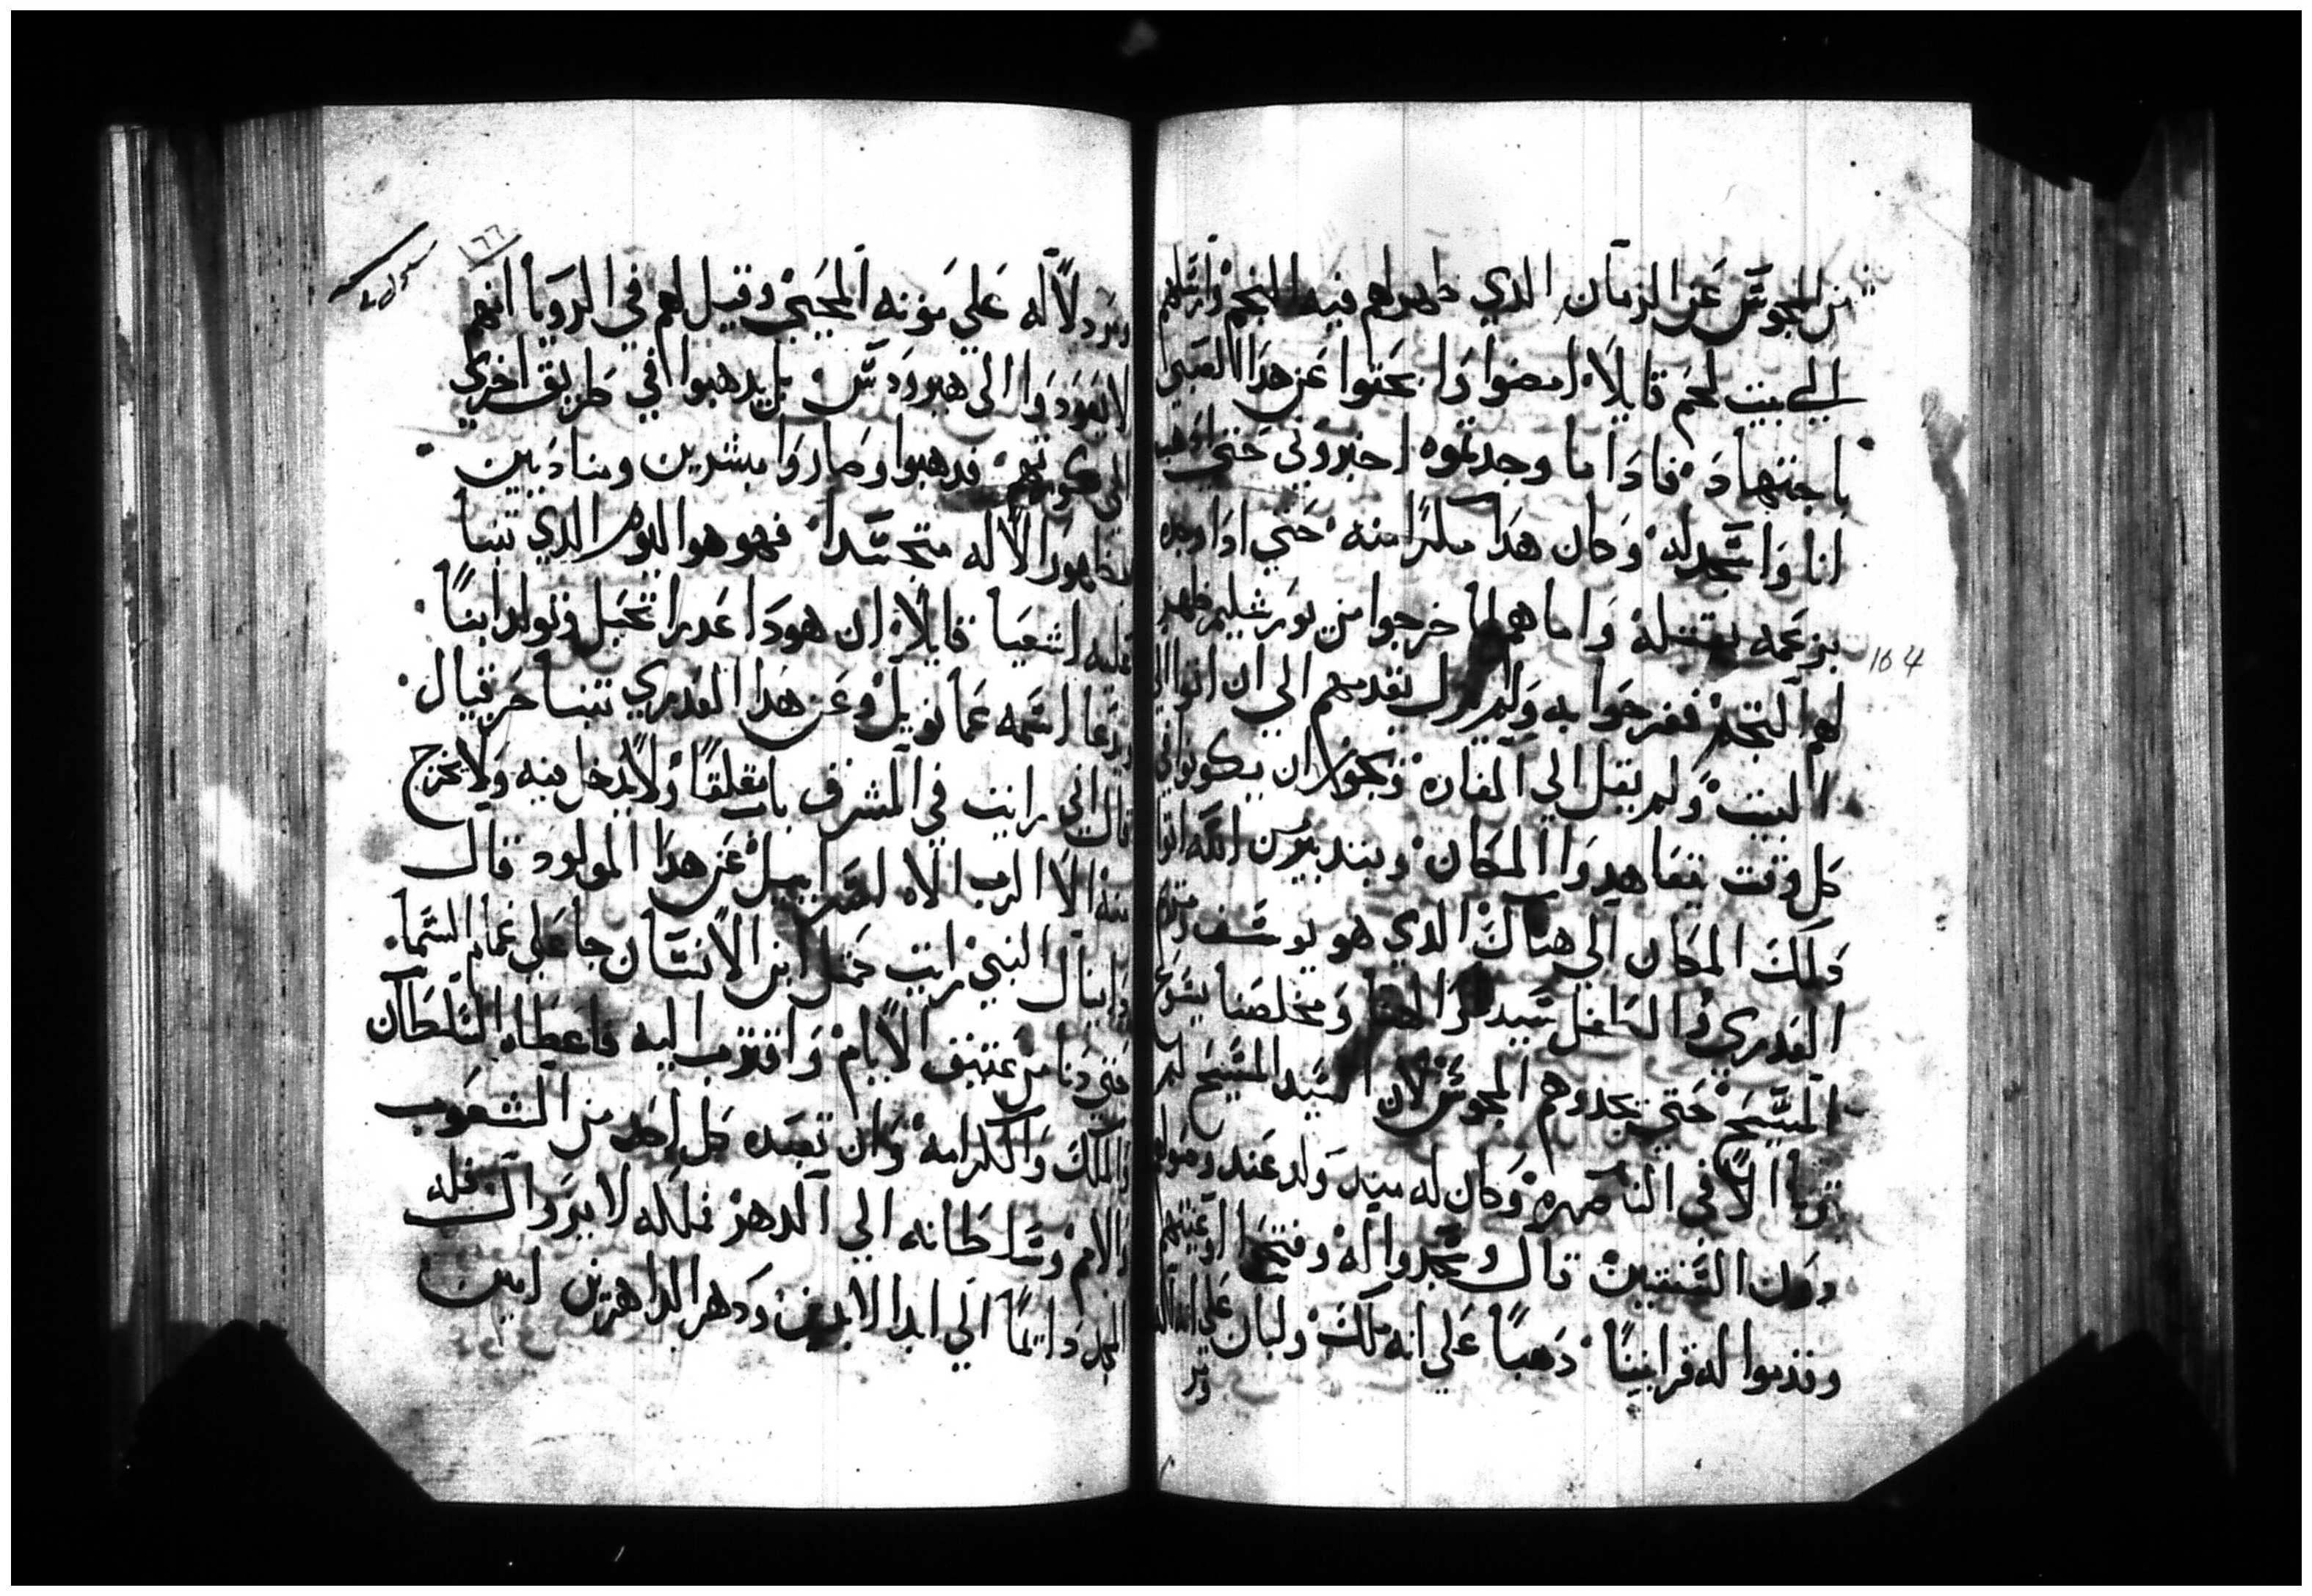 من المجوس عن الزمان الدي ظهر لهم فيه النجم وارسلهم
الي بيت لحم قايلاً امضوا وابحتوا عن هدا الصبي
باجتهاد فادا ما وجدتموه اخبروني حتي ادهب
انا واسجد له وكان هدا مكرًا منه حتي ادا وجده
بزعمه يقتله واما هم لما خرجوا من يورشليم ظهر
لهم النجم ففرحوا به ولم يزل يقدمهم الي ان اتوا الي
البيت ولم يقل الي المغاره ويجوز ان يكونوا في
كل وقت يتعاهدوا المكان
ملك المكان الي هناك الدي هو يوسف ومريم
العدري والطفل سيدنا والهنا ومخلصنا يسوع
المسيح حتي يجدوهم المجوس لان السيد المسيح لم
الا في الناصره وكان له ميد ولد عند
دون السنتين قال وسجدوا له وفتحوا اوعيتهم
وقدموا له قرابينًا دهبًا علي انه ملك ولبان علي انه اله
ومر
١٦٦
ومر دلاله علي موته المحيي وقيل لهم في الرويا انهم
لا يعودوا الي هيرودس بل يدهبوا في طريق اخري
الي كورتهم فدهبوا وصاروا مبشرين ومنادين
بظهور الاله متجسدا فهو هو اليوم الدي تنبا
عليه اشعيا قايلاً ان هودا عدرا تحبل وتولد ابنًا
ويدعا اسمه عمانويل وعن هدا العدري تنبا حزقيال
قال اني رايت في المشرق بابًا مغلقًا ولا يدخل فيه ولا يخرج
منه الا الرب الاه اسراييل عن هدا المولود قال
دانيال النبي رايت كمتل ابن الانسان جا علي غمام السما
حتي دنا من عتيق الايام واقترب اليه فاعطاه السلطان
والملك والكرامه وان تعبده كل احد من الشعوب
والامم وسلطانه الي الدهر ملكه لا يزوال فله
المجد دايمًا الي ابد الابدين ودهر الداهرين امين
164